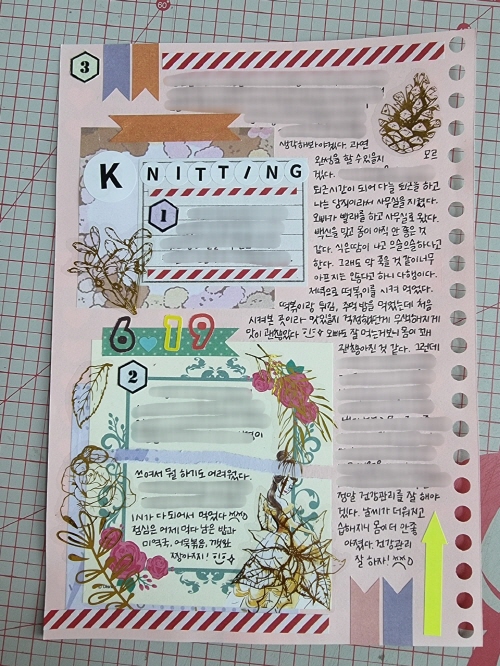 3
생각해봐야겠다. 과연
완성을 할 수 있을지 모르
겠다.
KNITTING
1
퇴근시간이 되어 다들 퇴근을 하고
나는 당직이라서 사무실을 지켰다.
오빠가 빨래를 하고 사무실로 왔다.
백신을 맞고 몸이 아직 안 좋은 것
같다. 식은땀이 나고 으슬으슬하다고
한다. 그래도 막 죽을 것 같이 너무
아프지는 않다고 하니 다행이다.
저녁으로 떡볶이를 시켜 먹었다.
떡볶이랑 튀김, 주먹밥을 먹었는데 처음
시켜본 곳이라 맛있을지 걱정했는데 무색하게
맛이 괜찮았다 오빠도 잘 먹는거보니 몸이 꽤
괜찮아진 것 같다. 그런데
6 19
2
쓰여서 뭘 하기도 어려웠다.
1시가 다 되어서 먹었다
점심은 어제 먹다 남은 밥과
미역국, 어묵볶음,
정말 건강관리를 잘 해야
겠다. 날씨가 더워지고
습해지니 몸이 더 안좋
아졌다. 건강관리
잘 하자!